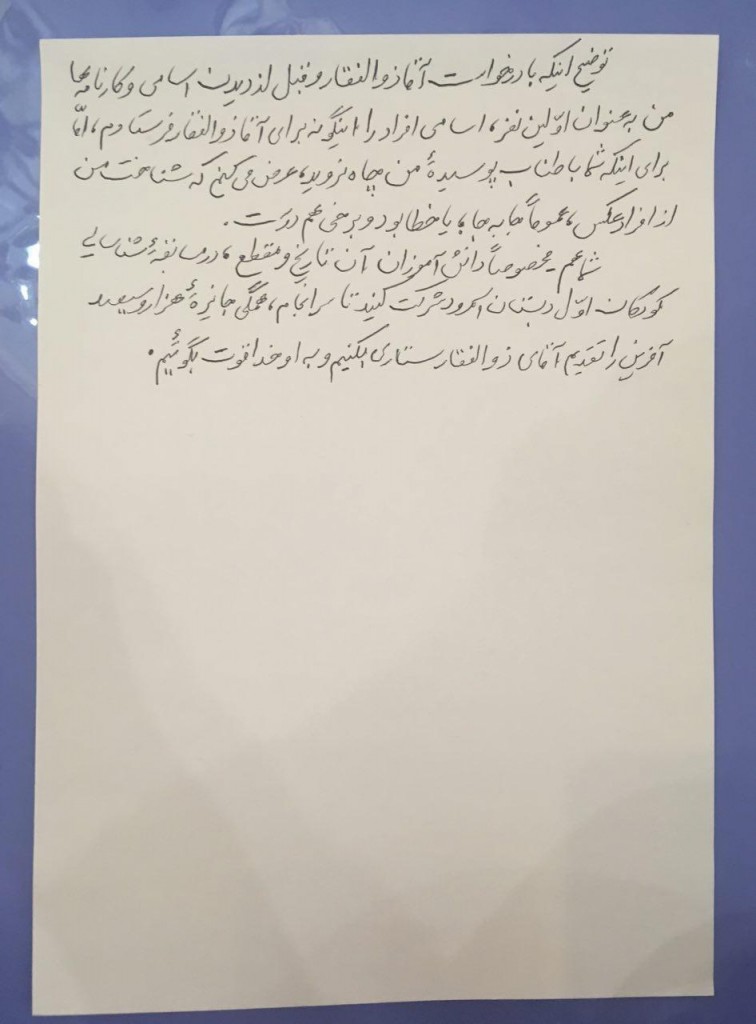 توضیح اینکه با درخواست آقا ذوالفقار و قبل از دیدن اسامی و کارنامه ها
من به عنوان اوّلین نفر، اسامی افراد را اینگونه برای آقا ذوالفقار فرستادم، امّا
برای اینکه شما با طناب پوسیدهٔ من چاه نروید، عرض می کنم که شناخت من
از افراد عکس، عموماً جا به جا، یا خطا بود و برخی هم درست.
شما هم مخصوصاً دانش آموزان آن تاریخ و مقطع، در مسابقهٔ شناسایی
کودکان اوّل دبستان اسمرود شرکت کنید تا سرانجام، همگی جایزهٔ هزار و سیصد
آفرین را تقدیم آقای ذوالفقار ستاری بکنیم و به او خدا قوت بگوئیم.